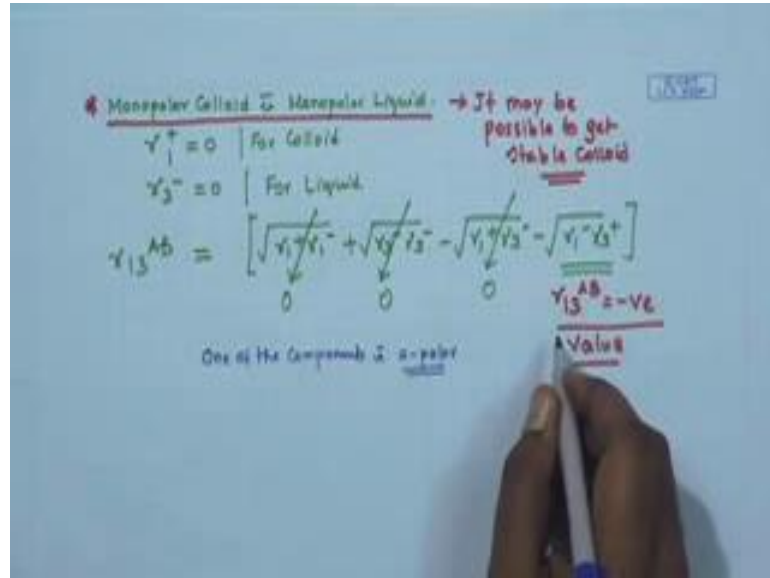 * Monopolar Colloid in Monopolar Liquid. → It may be
possible to get
Stable Colloid
γ₁⁺ = 0 | For Colloid
γ₃⁻ = 0 | For Liquid
γ₁₃ᴬᴮ = [√γ₁⁺γ₁⁻ + √γ₃⁺γ₃⁻ - √γ₁⁺γ₃⁻ - √γ₁⁻γ₃⁺]
0 0 0
γ₁₃ᴬᴮ = -ve
Value
One of the Components is a-polar